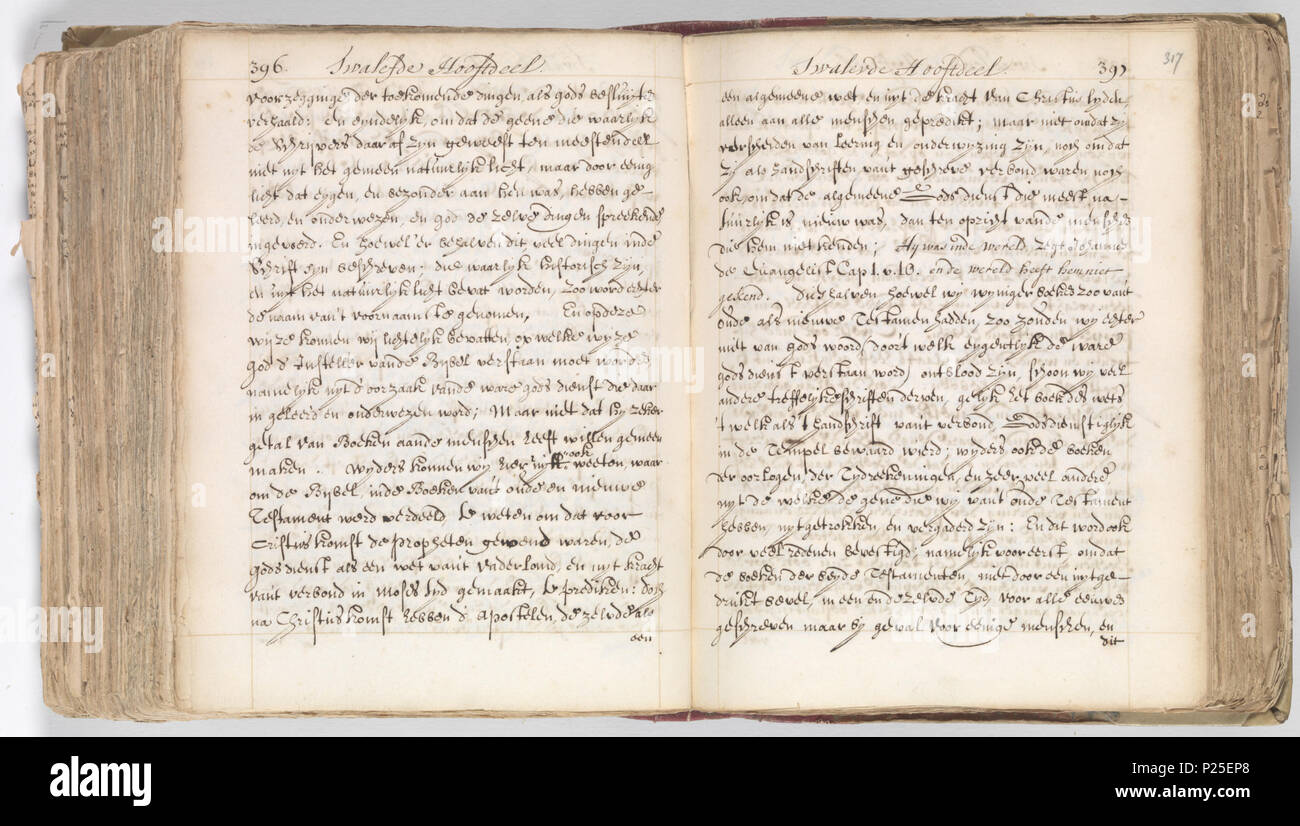 396. Twalefde Hooftdeel.
voorzegginge der toekomende dingen, als gods besluiten
verhaald: en eyndelyk, om dat de geene die waarlyk
de Schryvers daar af zyn geweest ten meestendeel
niet uyt het gemeen natuurlyk licht, maar door eenig
licht dat eygen, en bezonder aan hen was, hebben ge-
leerd, en onderwezen, en god de zelve dingen spreekende
ingevoerd. En hoewel 'er behalven dit, veel dingen inde
Schrift syn beschreven, die waarlyk historisch zyn,
en uyt het natuurlyk licht bevat worden, zoo word echter
de naam van't voornaamste genomen. En op deze
wyze konnen wy lichtelyk bevatten, op welke wyze
god d' Insteller vande Bybel verstaan moet worden,
namelyk uyt d' oorzaak vande ware gods dienst die daar
in geleerd en onderwezen word; Maar niet dat hy zeker
getal van Boeken aande menschen heeft willen gemeen
maken. Wyders konnen wy hier uyt ook weeten, waar-
om de Bybel, inde Boeken van't oude en nieuwe
Testament werd verdeeld, te weten om dat voor
Cristus komst de propheten gewend waren, de
godsdienst als een wet van't Vaderland, en uyt kracht
van't verbond in Moses tyd gemaakt, te prediken: doch
na Christus komst hebben d' Apostelen, de zelvde als
een
Twalevde Hooftdeel. 397
317
een algemeene wet, en uyt de kracht van Christus lyden
alleen aan alle menschen gepredikt; maar niet om dat zy
verscheiden van leering en onderwyzing zyn, noch om dat
zy als handschriften van't geschreve verbond waren noch
ook, om dat de algemeene Gods dienst die meest na-
tuurlyk is, nieuw was, dan ten opzicht vande menschen
die hem niet kenden; Hy was inde wereld, zegt Johannes
de Euangelist Cap. 1. v. 10. ende wereld heeft hem niet
gekend. Dies halven hoewel wy wyniger boeken zoo van't
oude als nieuwe Testament hadden, zoo zouden wy echter
niet van gods woord (door't welk eygentlyk de ware
gods dienst verstaan word) ontbloot zyn, schoon wy veel
andere treffelyke schriften derven, gelyk het boek des wets
't welk als 't handschrift van't verbond, Godsdienstiglyk
in de Tempel bewaard wierd; wyders ook de boeken
der oorlogen, der Tydreekeningen, en zeer veel andere
uyt de welke de gene die wy van't oude Testament
hebben, uytgetrokken, en vergaderd zyn: En dit word ook
door veel redenen bevestigd; namelyk voor eerst, om dat
de boeken der beyde Testamenten, niet door een uytge-
drukt bevel, in een ende zelvde tyd voor alle eeuwen
geschreven maar by geval voor eenige menschen, en
dit
alamy
Image ID: P25EP8
www.alamy.com